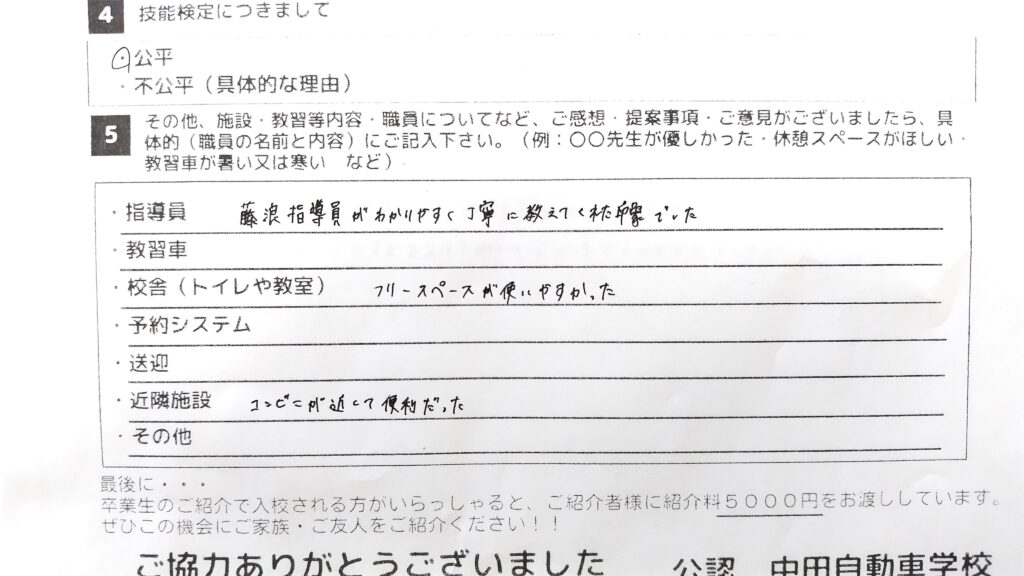 4 技能検定につきまして
・公平
・不公平（具体的な理由）
5 その他、施設・教習等内容・職員についてなど、ご感想・提案事項・ご意見がございましたら、具
体的（職員の名前と内容）にご記入下さい。（例：〇〇先生が優しかった・休憩スペースがほしい・
教習車が暑い又は寒い　など）
・指導員　藤浪指導員がわかりやすく丁寧に教えてくれた印象でした
・教習車
・校舎（トイレや教室）　フリースペースが使いやすかった
・予約システム
・送迎
・近隣施設　コンビニが近くて便利だった
・その他
最後に・・・
卒業生のご紹介で入校される方がいらっしゃると、ご紹介者様に紹介料５０００円をお渡ししています。
ぜひこの機会にご家族・ご友人をご紹介ください！！
ご協力ありがとうございました　公認　中田自動車学校